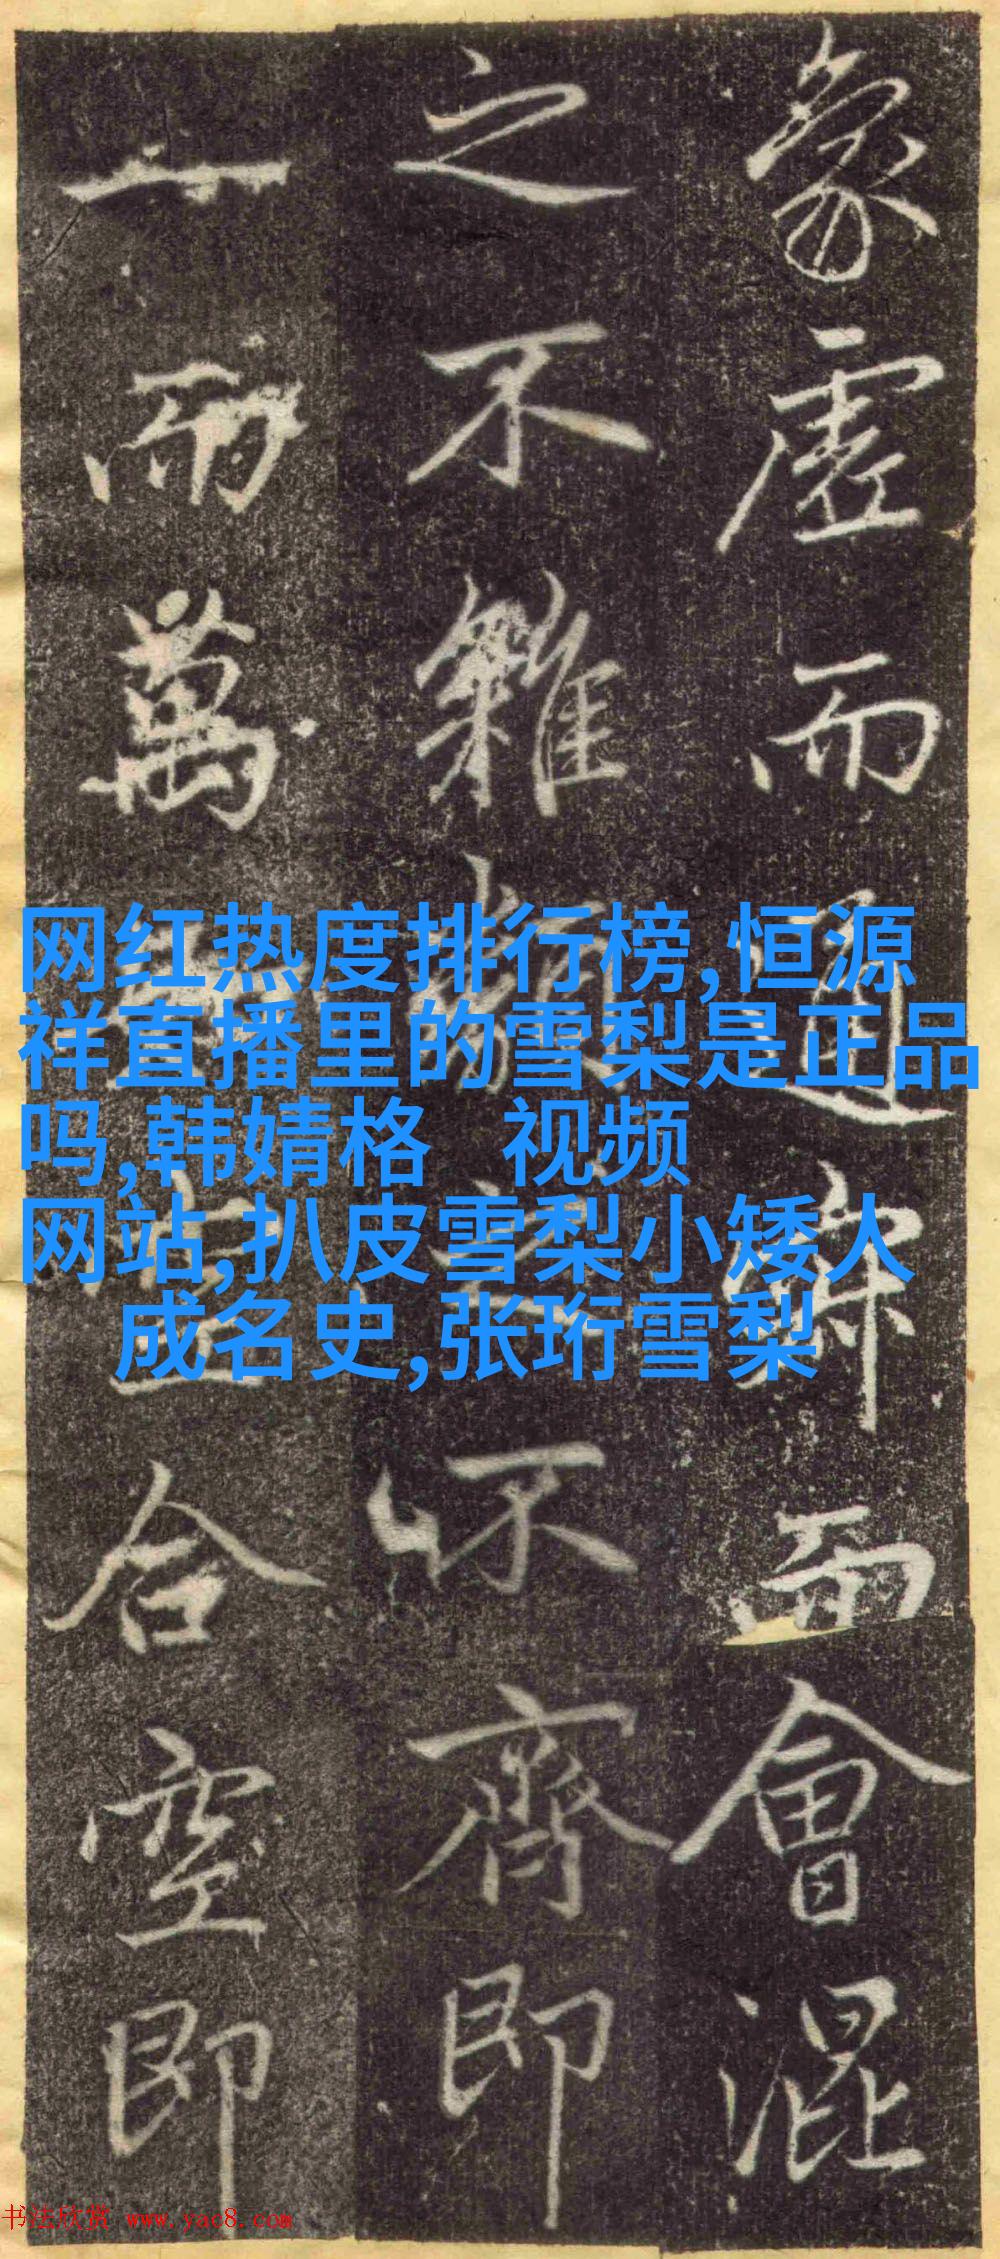 象虛而 而會混
之不雜 不齊即
一而萬 合空即
网红热度排行榜,恒源
祥直播里的雪梨是正品
吗,韩婧格 视频
网站,扒皮雪梨小矮人
成名史,张珩雪梨
书法欣赏 www.yac8.com